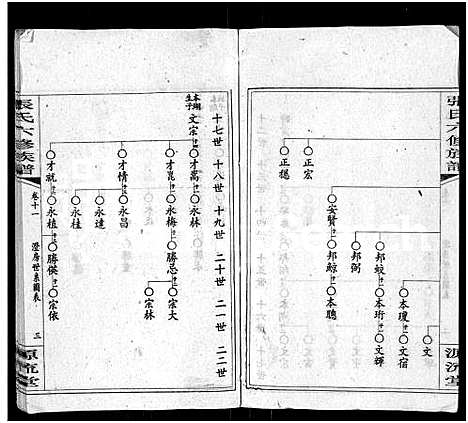 張氏六修族譜
源流堂
正宏
正揚
安賢
邦蛟
邦鯨
邦弼
本瓊
本珩
本聰
文
文宿
文輝
十七世 十八世 十九世 二十世 二一世 二二世
本瑚生子
文宗
才萬
永林
才崑
永梅
勝忠
宗大
宗林
才情
永昌
永達
永桂
才就
永植
勝俊
宗依
張氏六修族譜
卷十一
澄房世系圖表
三
源流堂